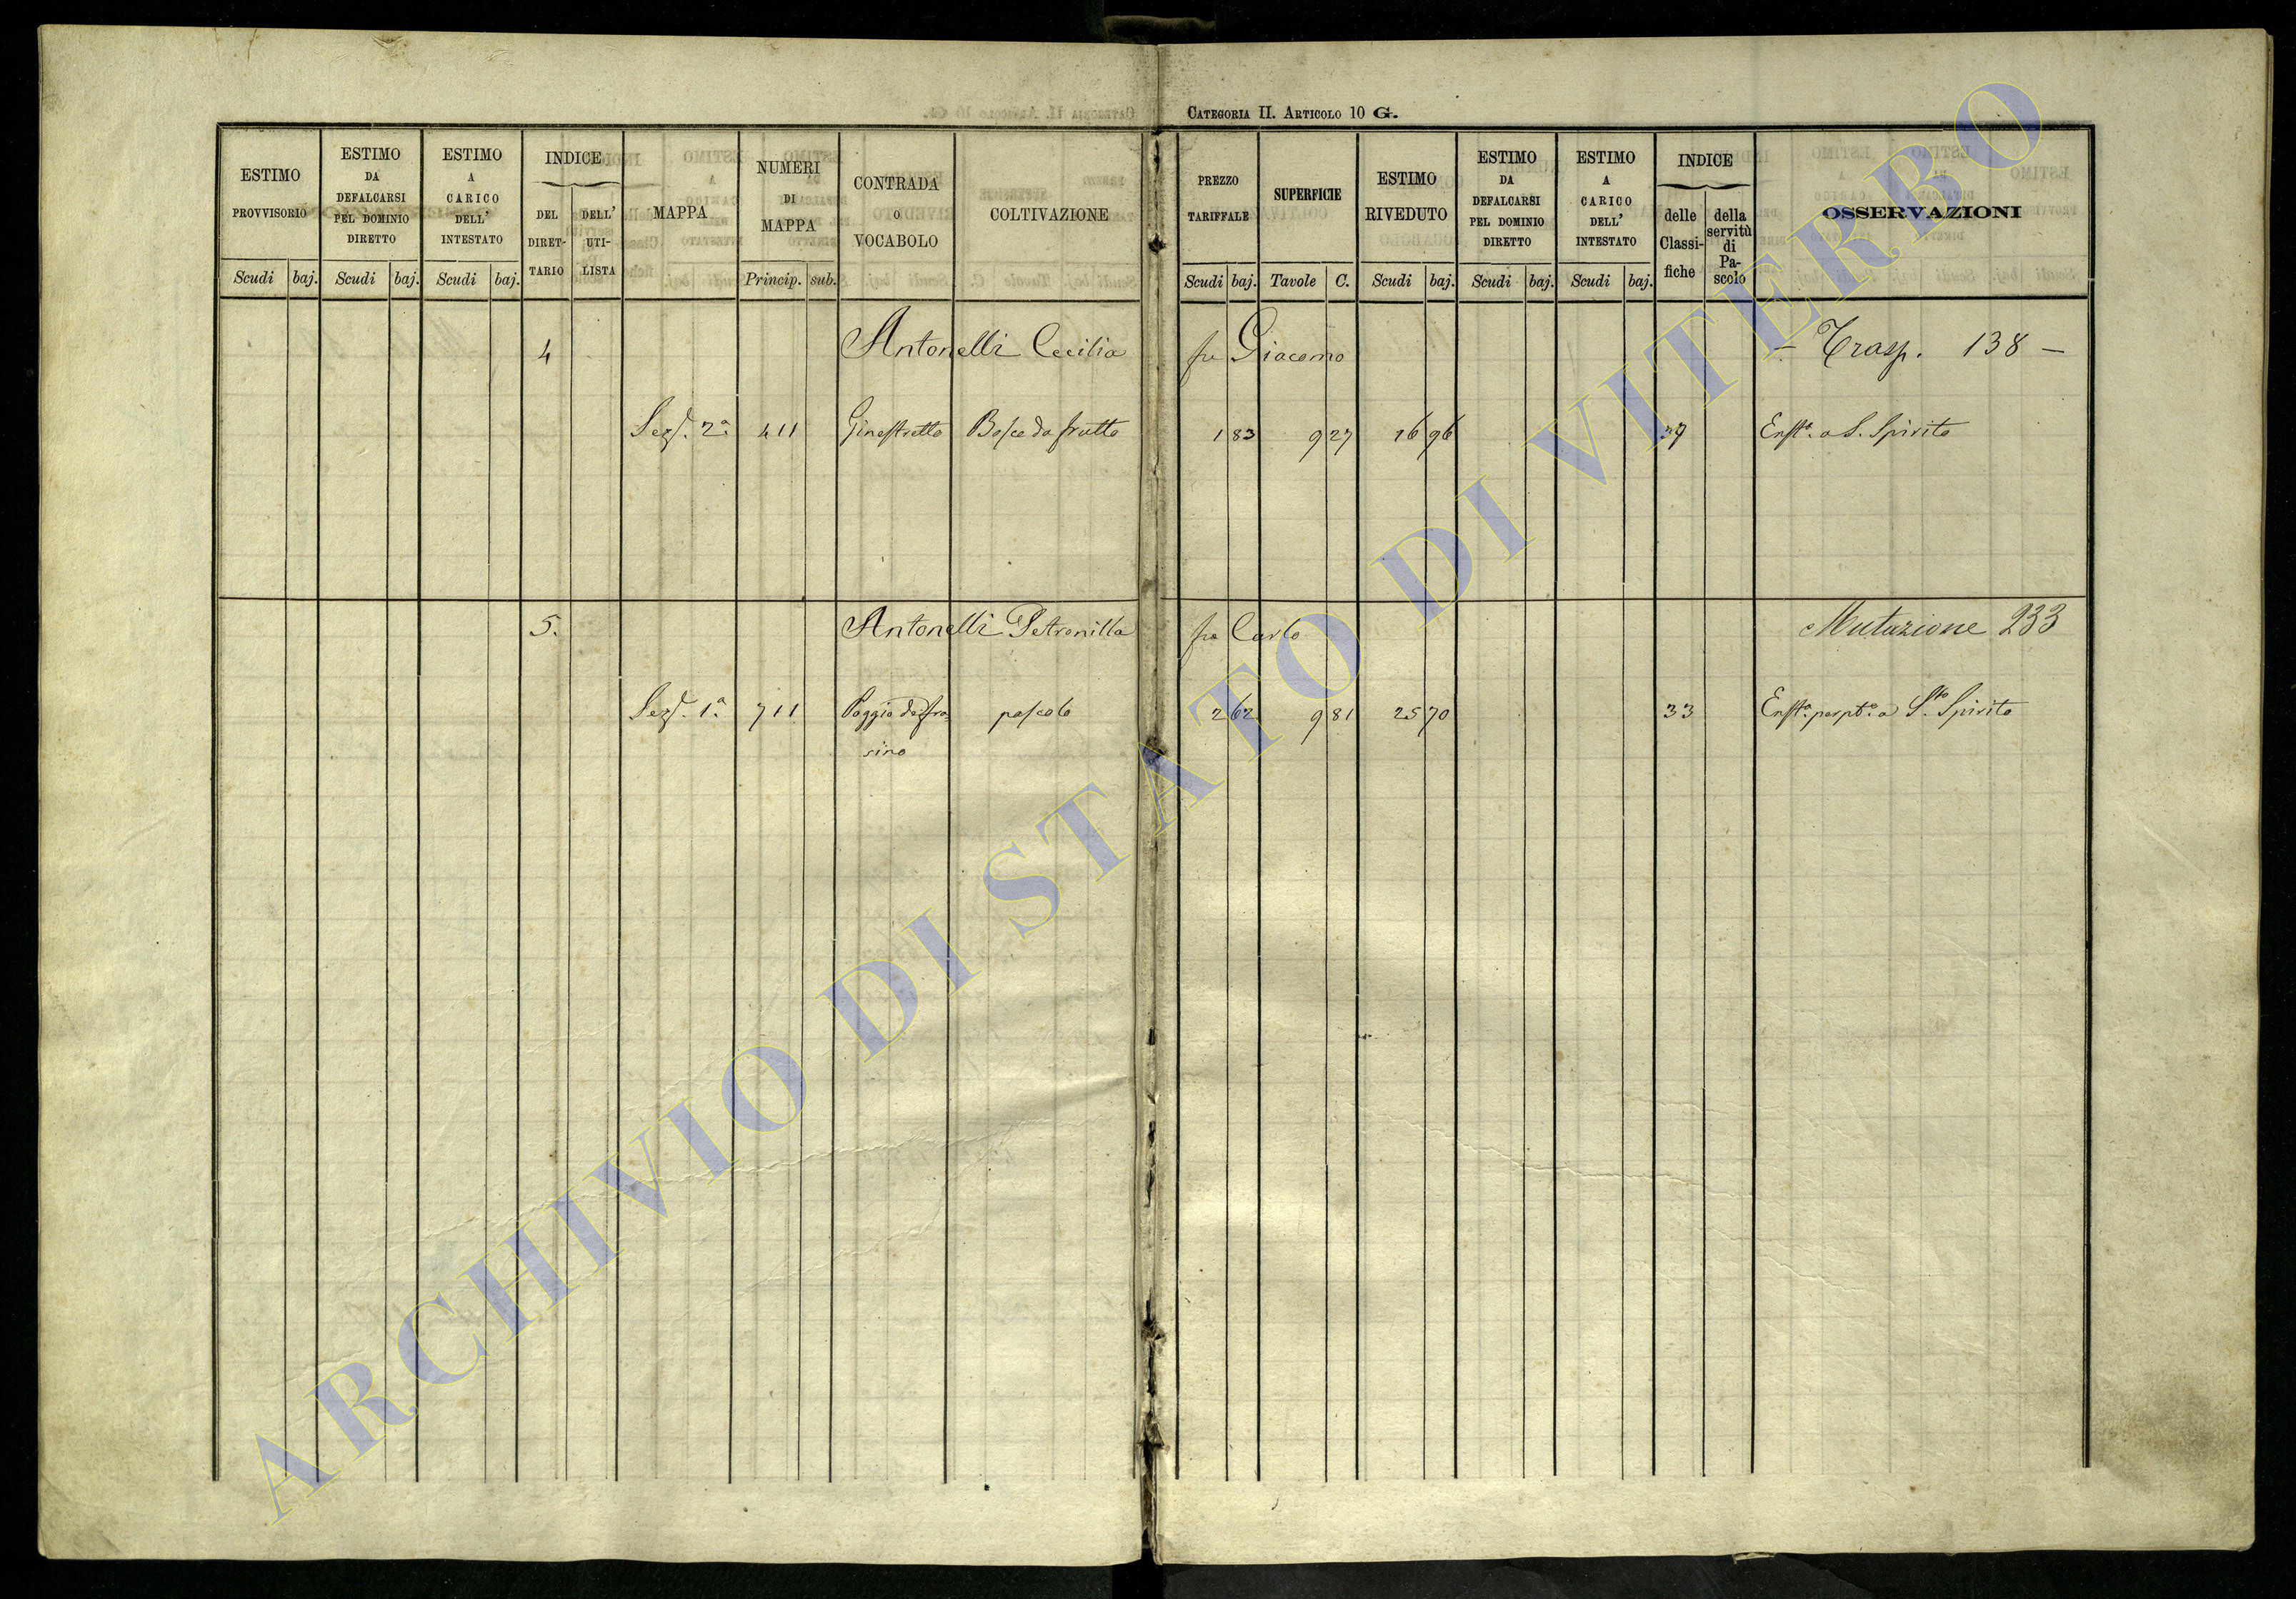 CATEGORIA II. ARTICOLO 10 G.
ESTIMO PROVVISORIO
Scudi baj.
ESTIMO DA DEFALCARSI PEL DOMINIO DIRETTO
Scudi baj.
ESTIMO A CARICO DELL' INTESTATO
Scudi baj.
INDICE
DEL DIRET-TARIO
DELL' UTI-LISTA
MAPPA
NUMERI DI MAPPA
Princip. sub.
CONTRADA O VOCABOLO
COLTIVAZIONE
PREZZO TARIFFALE
Scudi baj.
SUPERFICIE
Tavole C.
ESTIMO RIVEDUTO
Scudi baj.
ESTIMO DA DEFALCARSI PEL DOMINIO DIRETTO
Scudi baj.
ESTIMO A CARICO DELL' INTESTATO
Scudi baj.
INDICE
delle Classi-fiche
della servitù di Pa-scolo
OSSERVAZIONI
4 Antonelli Cecilia fu Giacomo – Trasp. 138 –
Sez.e 2a 411 Ginestretto Bosco da frutto 1 83 9 27 16 96 37 Enfta. a S. Spirito
5. Antonelli Petronilla fu Carlo Mutazione 233
Sez.e 1a 711 Poggio del fra- pascolo 2 62 9 81 25 70 33 Enfta. perpta. a Sto. Spirito
sino
ARCHIVIO DI STATO DI VITERBO